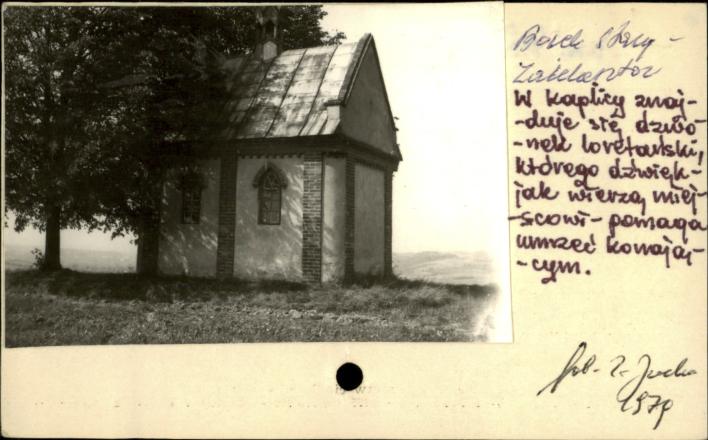 Borek Stary -
W kaplicy znaj-
-duje się dzwo-
-nek loretański,
którego dźwięk -
jak wierzą miej-
-scowi - pomaga
umrzeć konają-
-cym.
fot.
1979